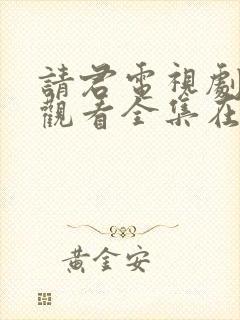 請君電視劇
觀看全集在
黃金安